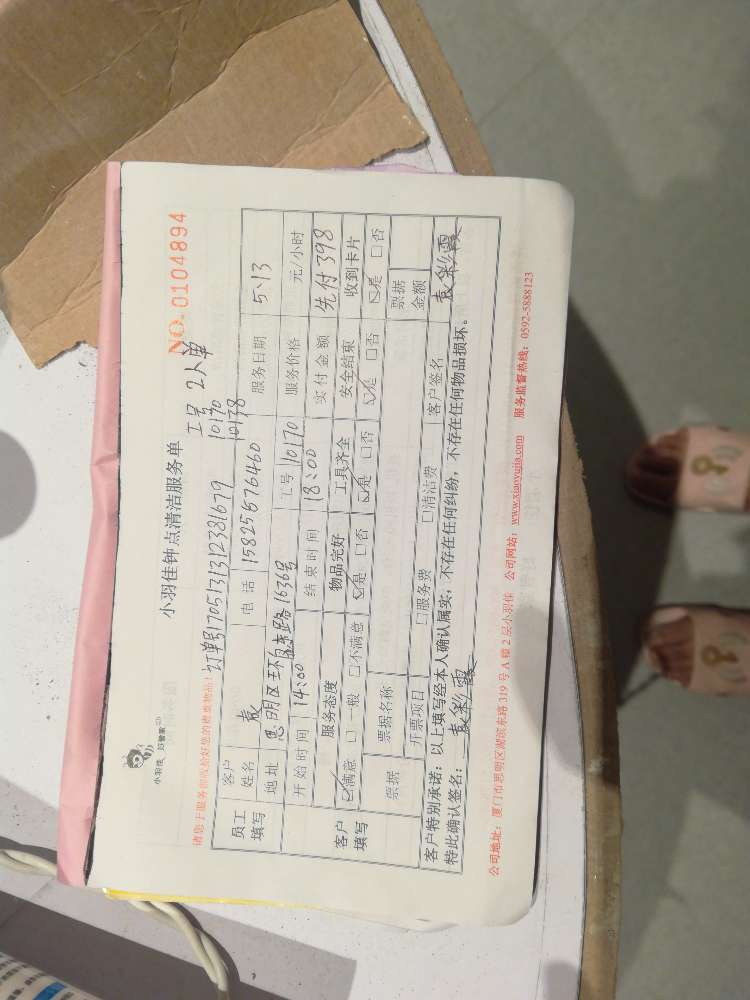 小羽佳 好管家
小羽佳钟点清洁服务单
NO. 0104894
请您于服务前收拾好您的贵重物品!
订单号1705131312381679
工号 2人单
10170
10138
员工填写
客户姓名 袁 电话 15825676460 服务日期 5.13
地址 思明区环岛东路1636号 工号 10170 服务价格 元/小时
开始时间 14:00 结束时间 18:00 实付金额 先付398
客户填写
服务态度 物品完好 工具齐全 安全结束 收到卡片
☑满意 □一般 □不满意 ☑是 □否 ☑是 □否 ☑是 □否 ☑是 □否
票据 票据名称 票据金额
开票项目 □服务费 □清洁费 客户签名 袁彩霞
客户特别承诺:以上填写经本人确认属实,不存在任何纠纷,不存在任何物品损坏。
特此确认签名: 袁彩霞
公司地址:厦门市思明区湖滨东路 319 号 A 幢 2 层小羽佳 公司网站:www.xiaoyujia.com 服务监督热线:0592-5888123